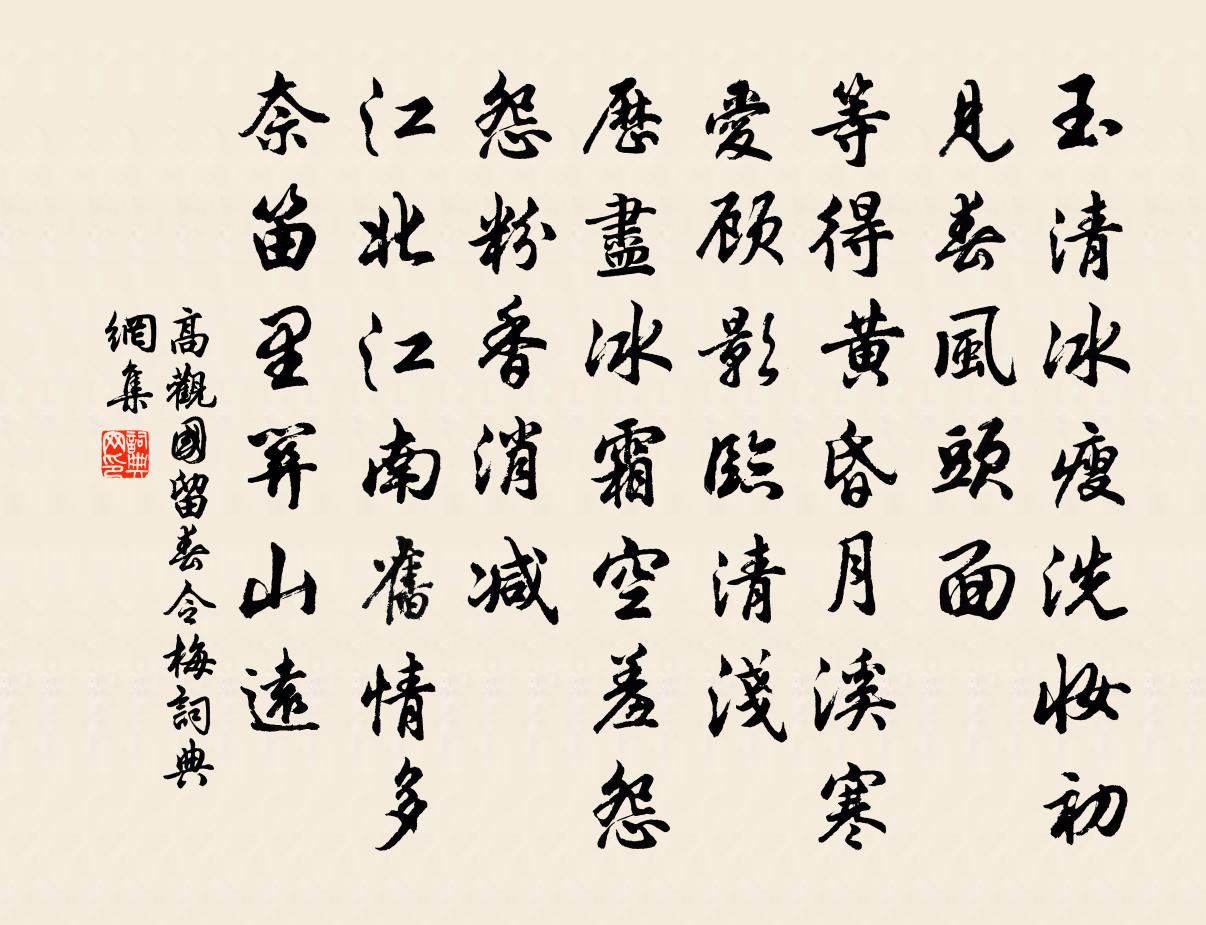 玉清冰瘦洗妝初
見春風頭面
等得黃昏月溪寒
愛顧影臨清淺
歷盡冰霜空羞怨
怨粉香消減
江北江南舊情多
奈笛里關山遠
高觀國留春令梅詞典
網集
詞典網印